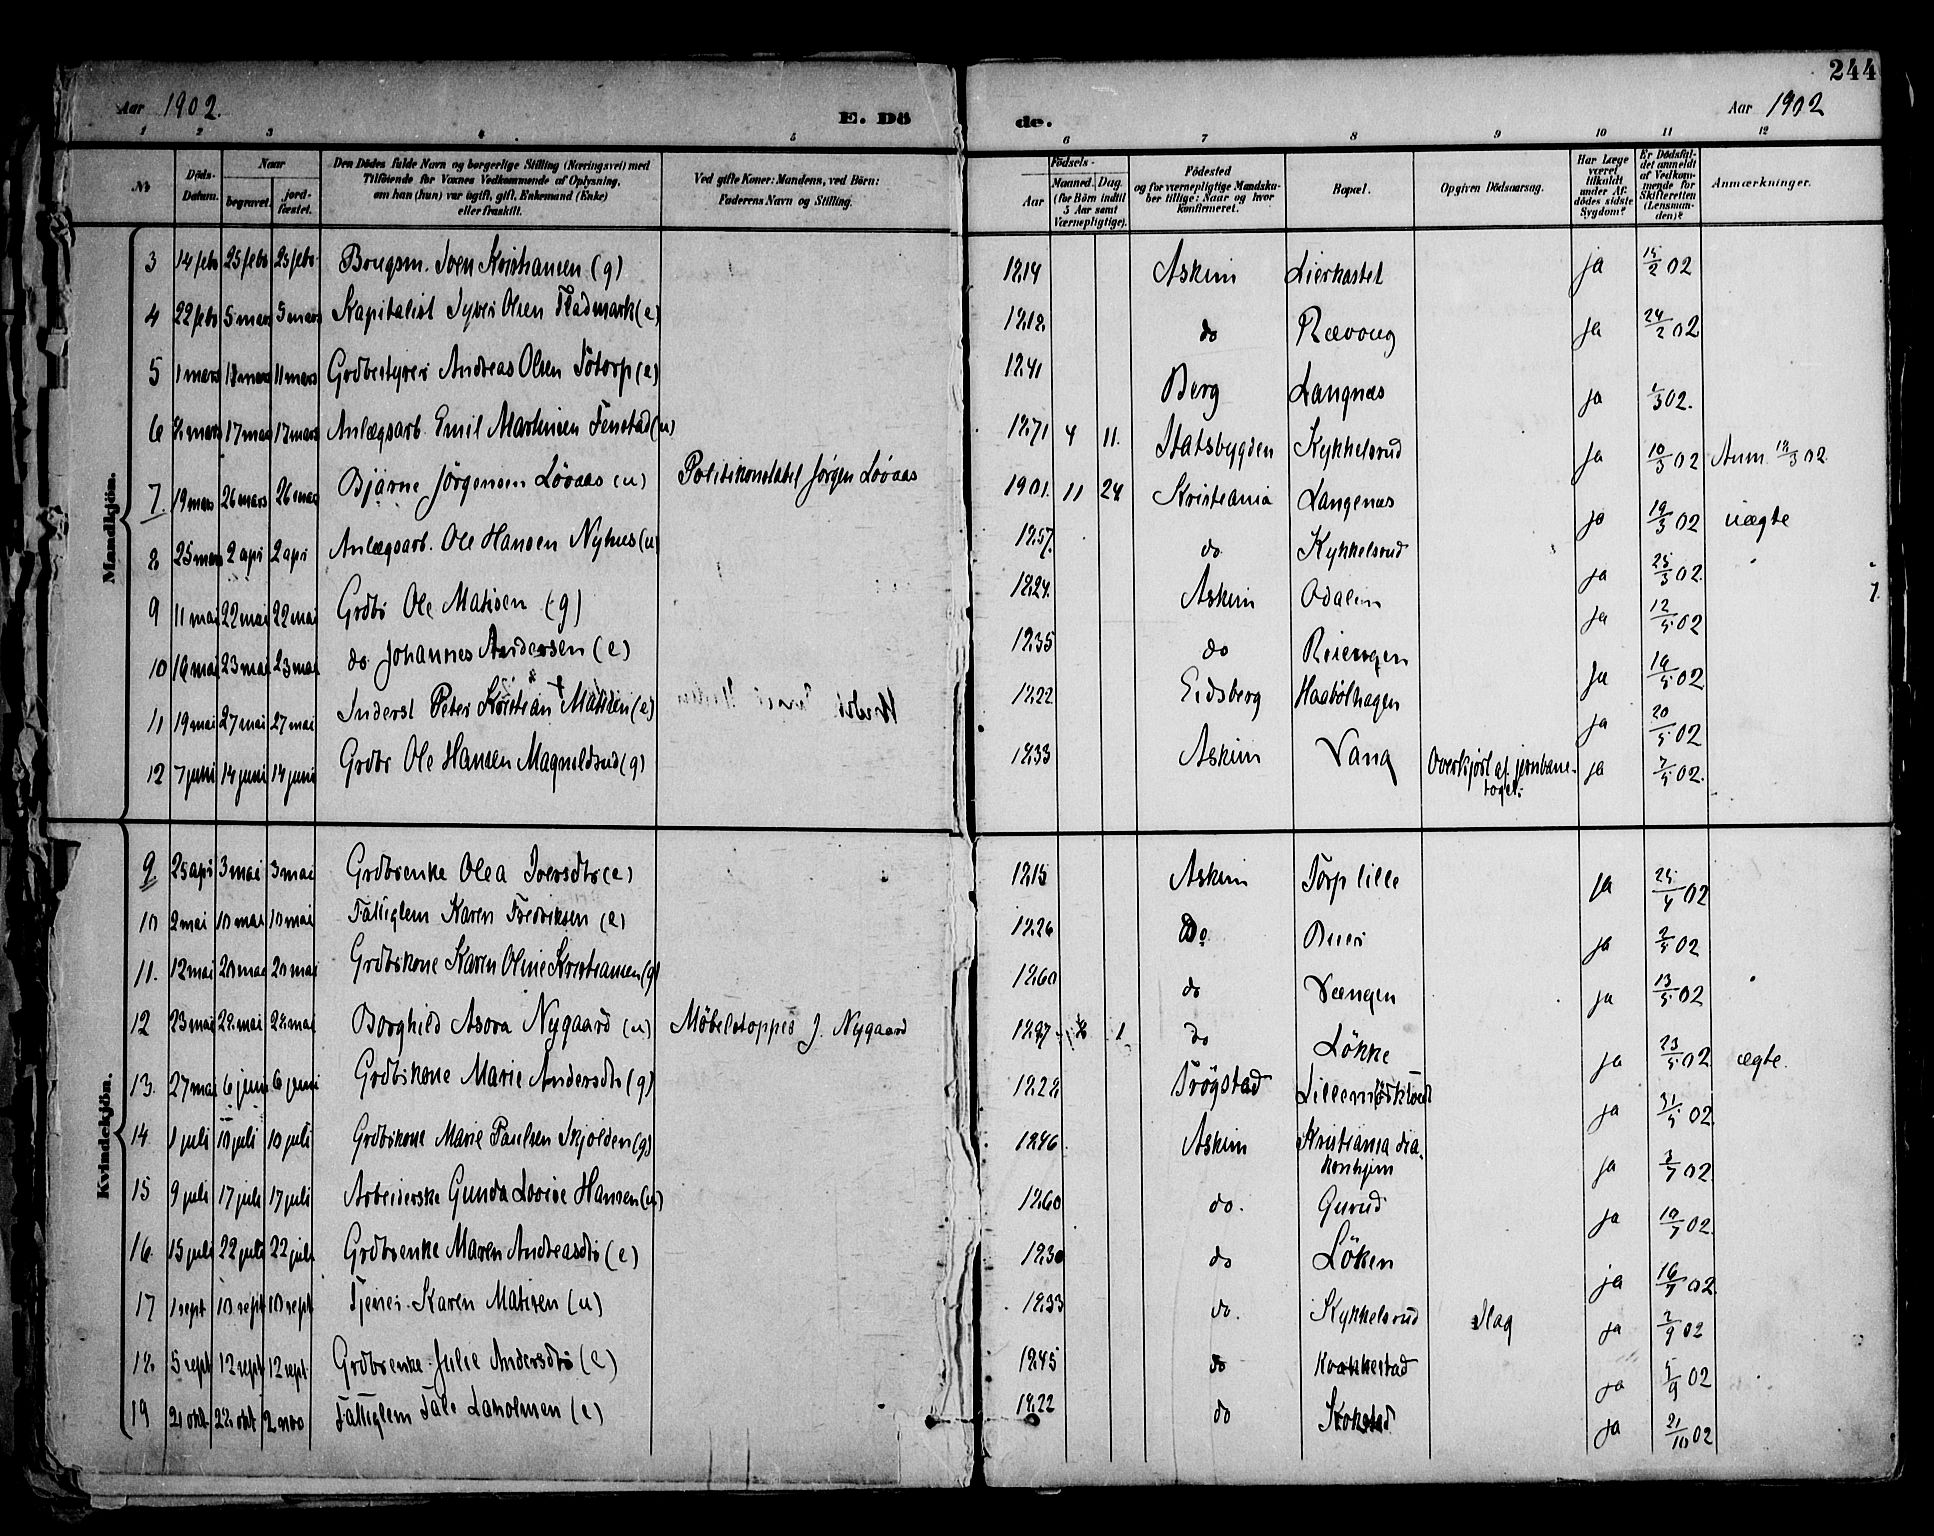 244
Aar 1902. E. Dö de. Aar 1902
1 2 3 4 5 6 7 8 9 10 11 12
№
Döds-Datum.
Naar
begravet.
jordfæstet.
Den Dödes fulde Navn og borgerlige Stilling (Næringsvei) med
Tilföiende for Voxnes Vedkommende af Oplysning,
om han (hun) var ugift, gift, Enkemand (Enke)
eller fraskilt.
Ved gifte Koner: Mandens, ved Börn:
Faderens Navn og Stilling.
Födsels-
Aar
Maaned. Dag.
(for Börn indtil
5 Aar samt
Værnepligtige).
Födested
og for værnepligtige Mandskaber tillige: Naar og hvor
konfirmeret.
Bopæl.
Opgiven Dödsaarsag.
Har Læge
været
tilkaldt
under Afdödes sidste
Sygdom?
Er Dödsfaldet anmeldt
af Vedkommende for
Skifteretten
(Lensmanden)?
Anmærkninger.
Mandkjön.
3 14 febr 25 febr 25 febr Brugsm. Iven Kristiansen (g) 1814 Askim Lierkastet ja 15/2 02
4 22 febr 5 mars 5 mars Kapitalist Syver Olsen Fladmark (e) 1812 do Rævoug ja 24/2 02
5 1 mars 11 mars 11 mars Grdbestyrer Andreas Olsen Totorp (e) 1841 Berg Langnæs ja 1/3 02.
6 8 mars 17 mars 17 mars Anlægsarb. Emil Martinsen Fenstad (u) 1871 4 11. Statsbygden Kykkelsrud ja 10/3 02 Anm. 18/3 02.
7. 19 mars 26 mars 26 mars Bjarne Jörgensen Løvaas (u) Politikonstabel Jørgen Løvaas 1901. 11 24 Kristiania Langenæs ja 19/3 02 uægte
8 25 mars 2 apr 2 apr Anlægsarb. Ole Hansen Nyhus (u) 1857. do Kykkelsrud ja 25/3 02.
9 11 mai 22 mai 22 mai Grdbr Ole Matisen (g) 1824. Askim Odalen ja 12/5 02
10 16 mai 23 mai 23 mai do Johannes Andersen (e) 1835 do Reiemgen ja 16/5 02
11 19 mai 27 mai 27 mai Inderst Peter Kristian Matisen (e) 1822 Eidsberg Haabølhagen ja 20/5 02
12 7 juni 14 juni 14 juni Grdbr Ole Hansen Magneldsrud (g) 1833 Askim Vang Overkjørt af jernbane-
toget. ja 7/5 02.
Kvindekjön.
9 25 apr 3 mai 3 mai Grdbrenke Olea Iversdtr (e) 1815 Askim Torp lille ja 25/4 02
10 2 mai 10 mai 10 mai Fattiglem Karen Fredriksen (e) 1826 Do Buer ja 2/5 02
11. 12 mai 20 mai 20 mai Grdbrkone Karen Oline Kristiansen (g) 1860 do Vængen ja 13/5 02
12 23 mai 28 mai 28 mai Borghild Asora Nygaard (u) Møbelstopper J. Nygaard 1897 1 do Løkke ja 23/5 02 ægte.
13. 27 mai 6 juni 6 juni Grdbrkone Marie Andersdtr (g) 1828 Trögstad ja 31/5 02.
14 1 juli 10 juli 10 juli Grdbrkone Marie Paulsen Skjolden (g) 1846 Askim Kristiania dia-
konhjem ja 3/7 02
15 9 juli 17 juli 17 juli Arbeiderske Gunda Lovise Hansen (u) 1860 do. Gurud ja 10/7 02.
16. 15 juli 22 juli 22 juli Grdbrenke Maren Andreasdtr (e) 1830 do Løken ja 16/7 02.
17 1 sept 10 sept 10 sept Tjener Karen Matisen (u) 1833 do. Kykkelsrud Slag ja 2/9 02
18. 5 sept 12 sept 12 sept. Grdbrenke Julie Andersdtr (e) 1845 do Kvakkestad ja 5/9 02
19 21 okt 28 okt 2 nov Fattiglem Tale (e) 1822 do Kokstad ja 21/10 02